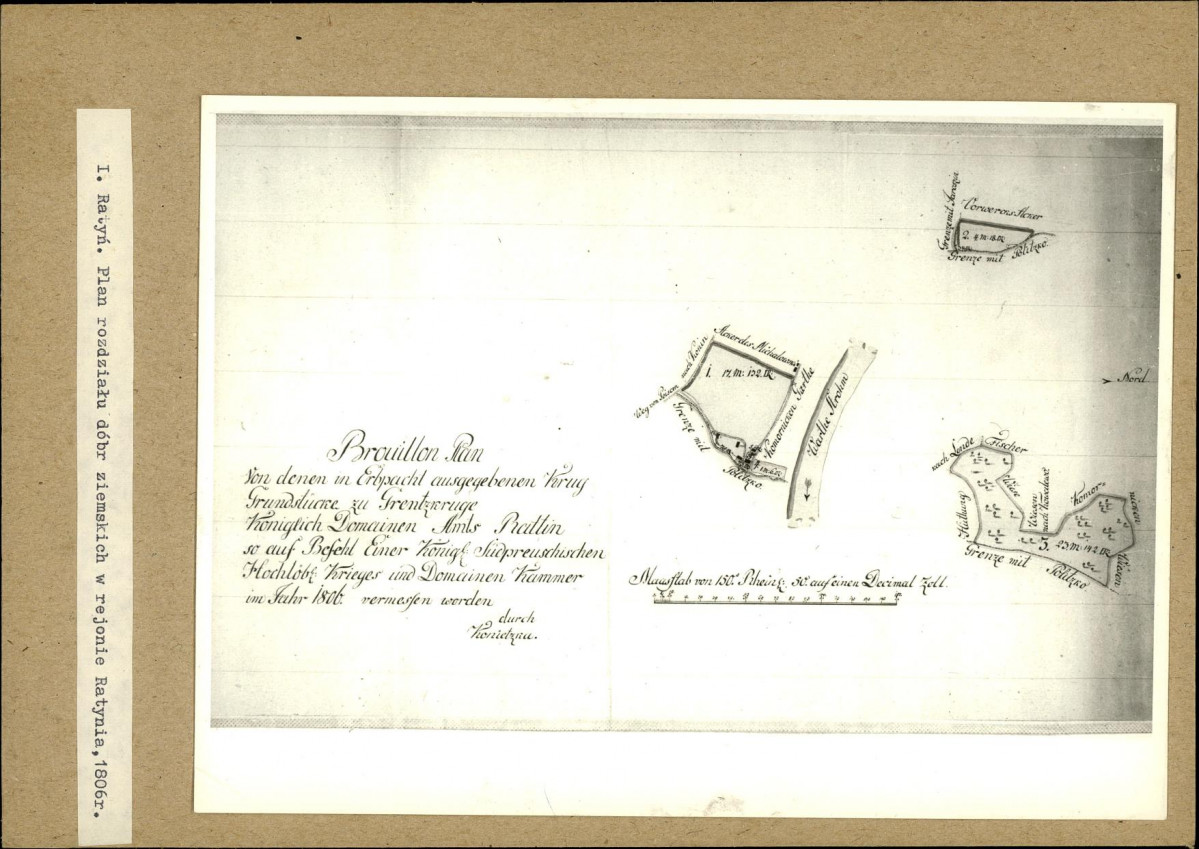 I. Ratyń. Plan rozdziału dóbr ziemskich w rejonie Ratynia,1806r.
Brouillon Plan
Von denen in Erbpacht ausgegebenen Krug
Grundstücke zu Grentzkruge
Königlich Domainen Amts Rattin
so auf Befehl Einer Königl. Südpreusischen
Hochlöbl. Krieges und Domainen Kammer
im Jahr 1806. vermessen worden
durch
Grenze mit
Vorwercks Acker
2. 4 M. 18.
Grenze mit Politzko.
Acker des Michalowsky
1. 12. M. 132.
nach Konin
Weg von
Grenze mit
Politzko.
Warthe Strohm
Nord.
nach Lende
Fischer
Wiese
Huttung
Grenze mit Politzko.
Wiesen
3. 23. M. 142.
Komor-
nicken
Wiesen
Maasstab von 150.° Rheinl. 50. auf einen Decimal Zoll.